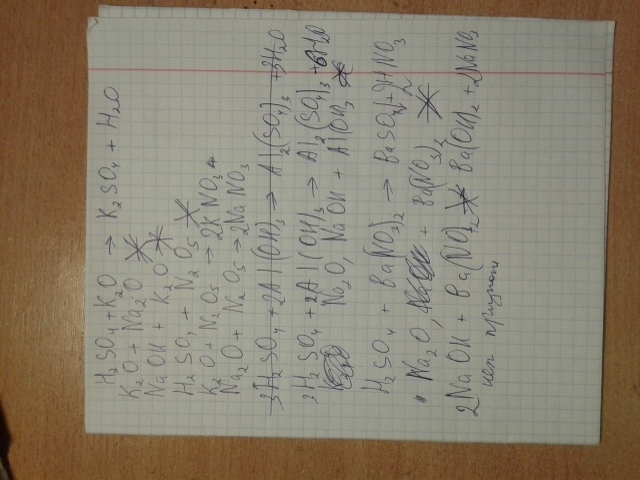 H₂SO₄ + K₂O → K₂SO₄ + H₂O
K₂O + Na₂O
NaOH + K₂O
H₂SO₄ + N₂O₅
K₂O + N₂O₅ → 2KNO₃
Na₂O + N₂O₅ → 2NaNO₃
3H₂SO₄ + 2Al(OH)₃ → Al₂(SO₄)₃ + 3H₂O
3H₂SO₄ + 2Al(OH)₃ → Al₂(SO₄)₃ + 6H₂O
Na₂O, NaOH + Al(OH)₃
H₂SO₄ + Ba(NO₃)₂ → BaSO₄↓ + 2HNO₃
Na₂O, + Ba(NO₃)₂
2NaOH + Ba(NO₃)₂ Ba(OH)₂ + 2NaNO₃
нет